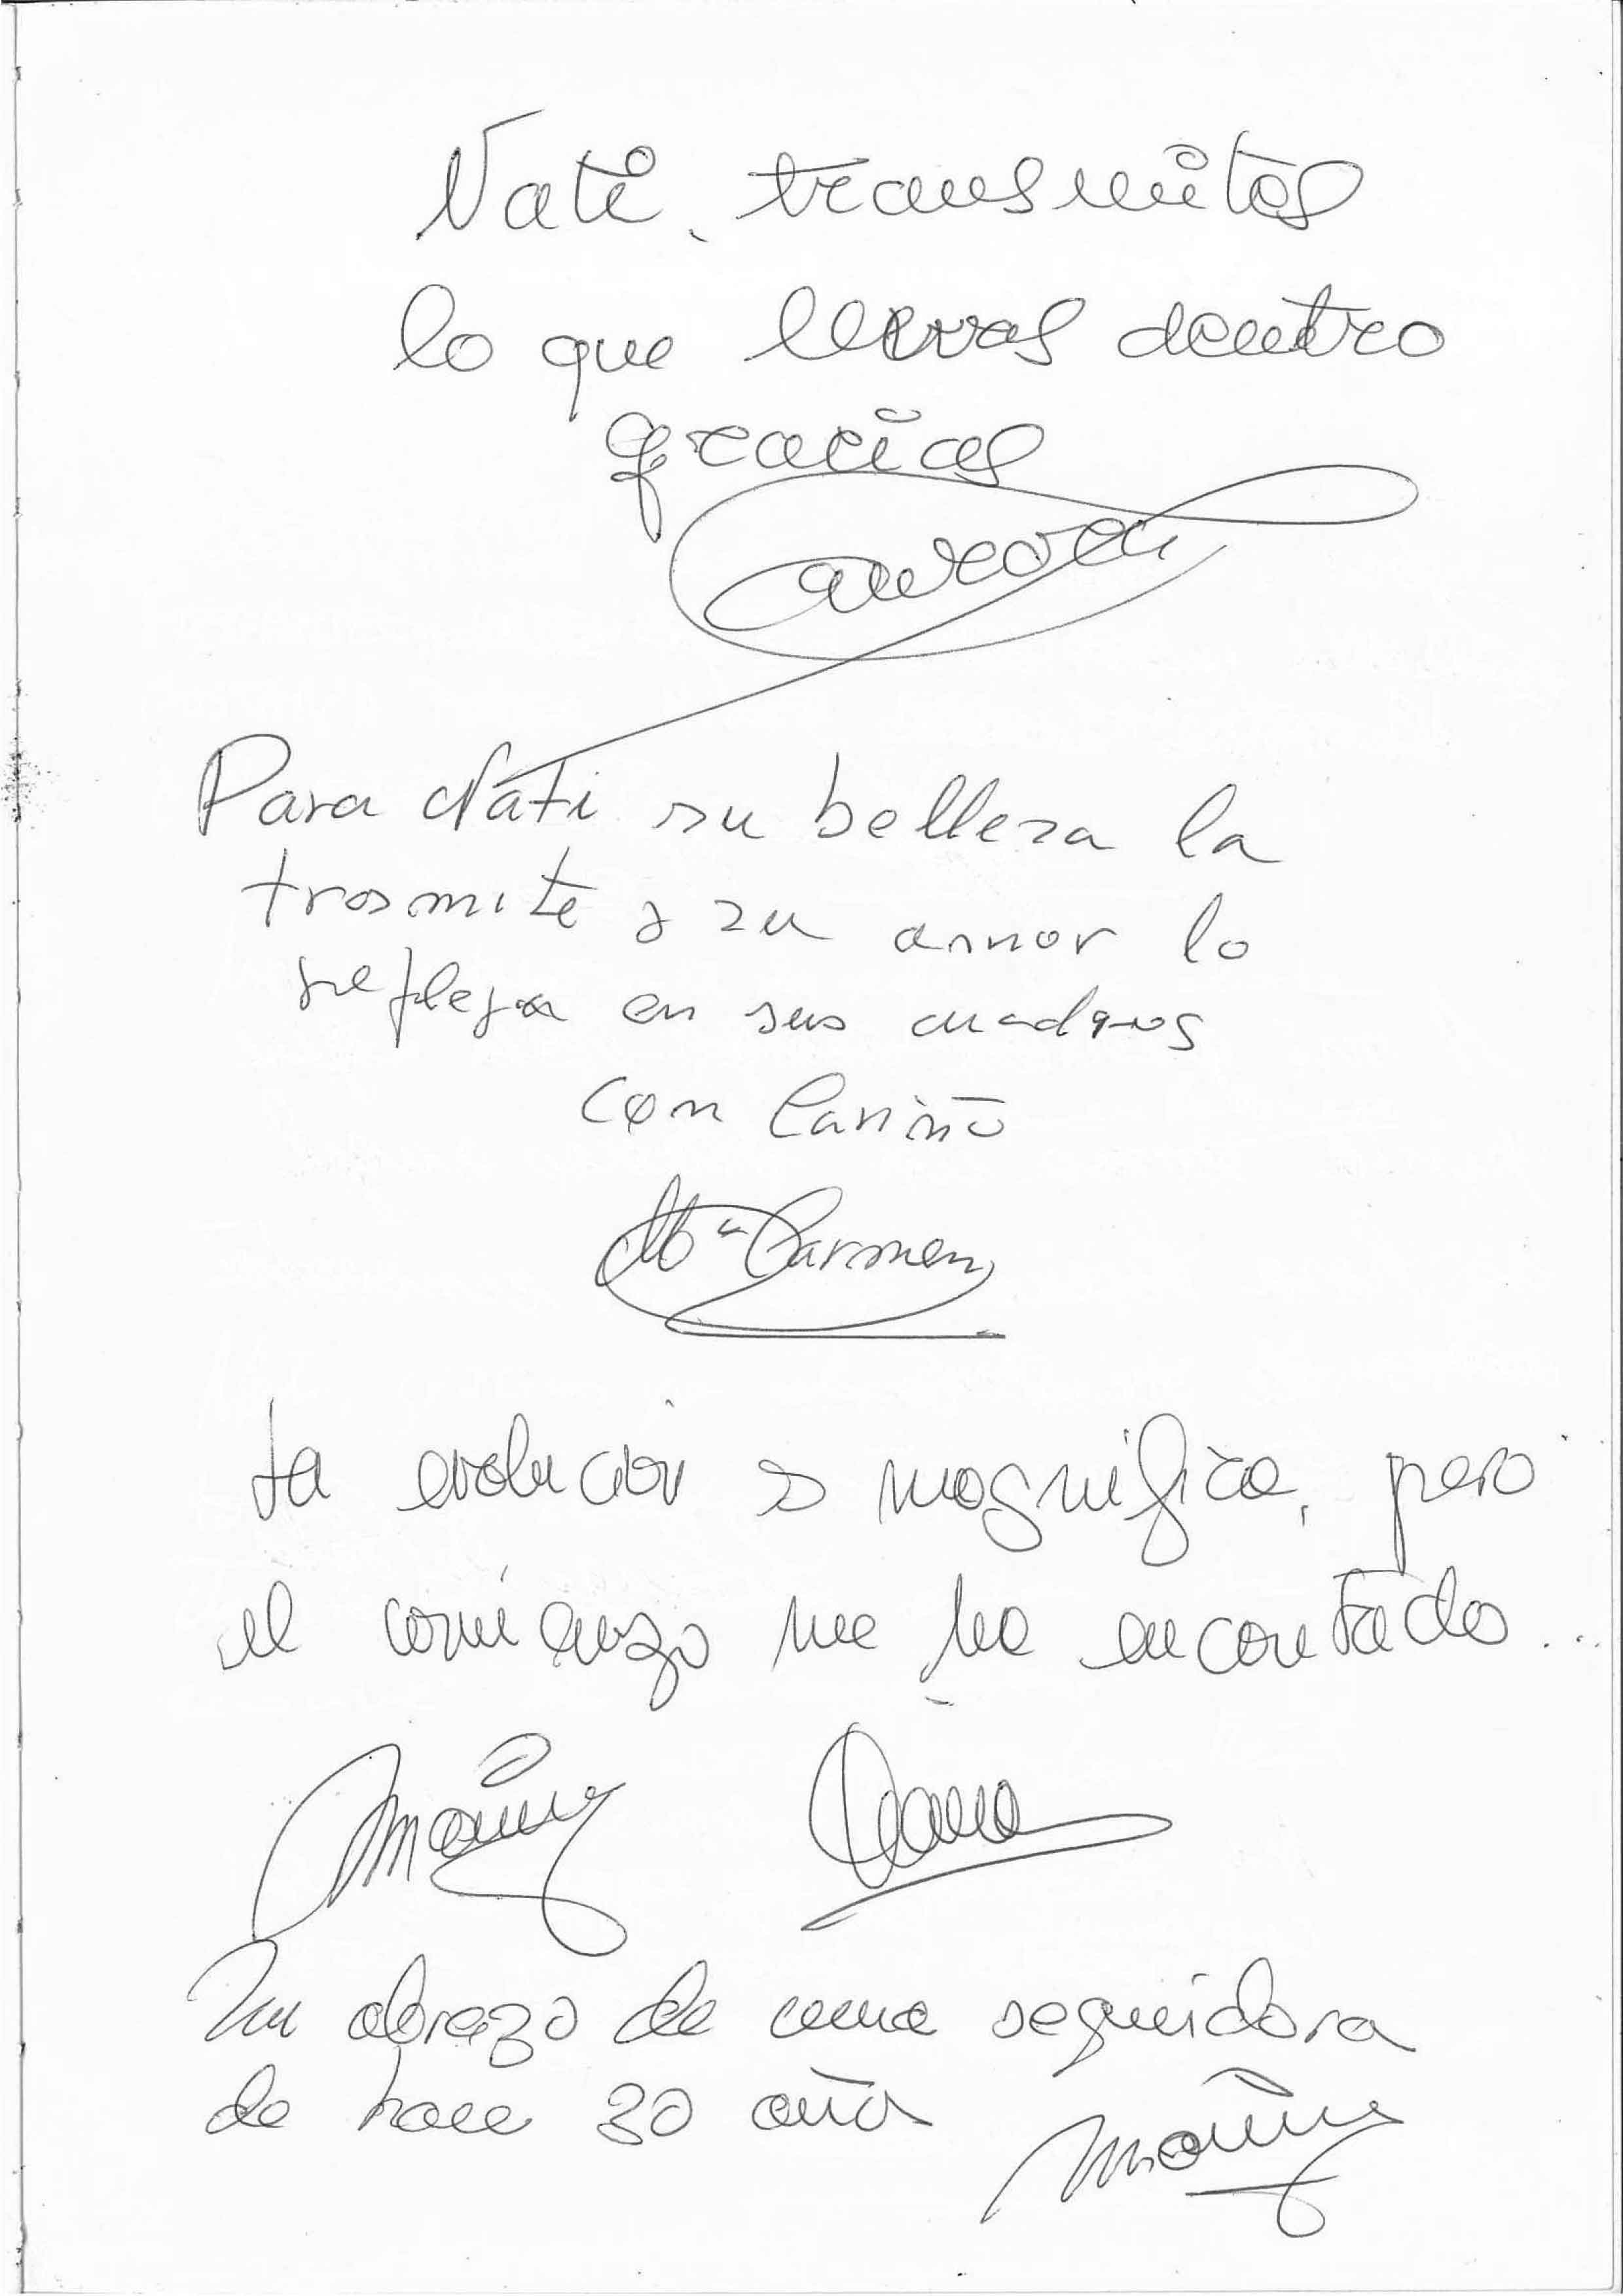 Nati, transmites
lo que llevas dentro
gracias
aurora
Para Nati su belleza la
trasmite y su amor lo
refleja en sus cuadros
con Cariño
Mª Carmen
La evolución es magnífica, pero
el comienzo me ha encontado...
Un abrazo de una seguidora
de hace 30 años